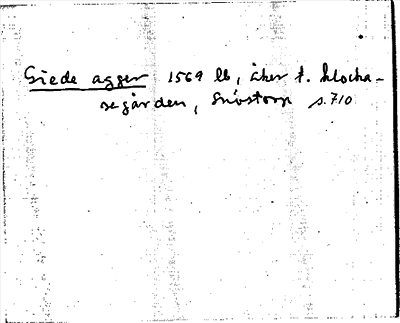 Giede agger 1569 lb, åker t. klocka-
regården, Snöstorp s.710